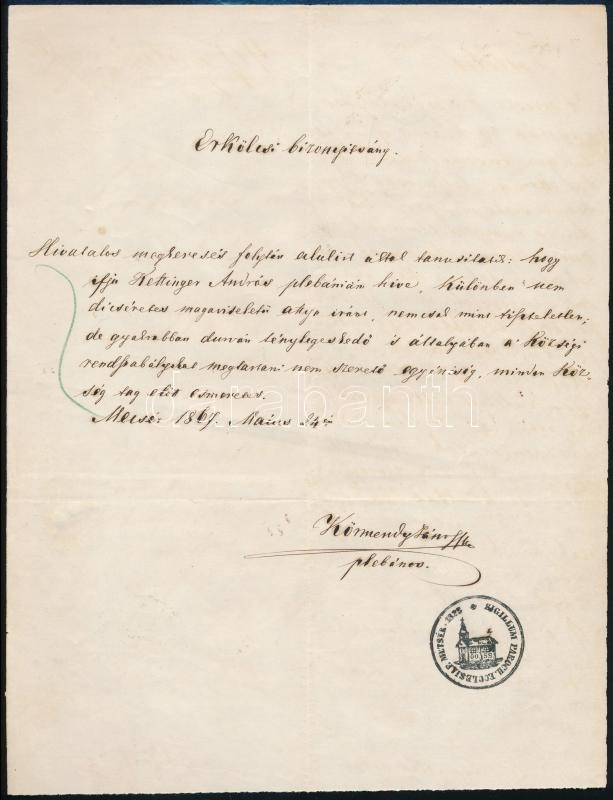 Erkölcsi bizonyitvány.
Hivatalos megkeresés folytán alulirt által tanusitatik: hogy
ifju Rettinger András plebániám hive, Különben nem
dicséretes magaviseletü atyja iránt, nemcsak mint tiszteletlen;
de gyakrabban durván tényleges kedő is általyában a Községi
rendszabályokat megtartani nem szerető egyéniség, minden Köz-
ség tag előtt esmeretes.
Mecsér 1867. Május 24én
Körmendy János
plebános.
SIGILLUM PAROCH. ECCLESIAE METSÉR. 1828
darabanth